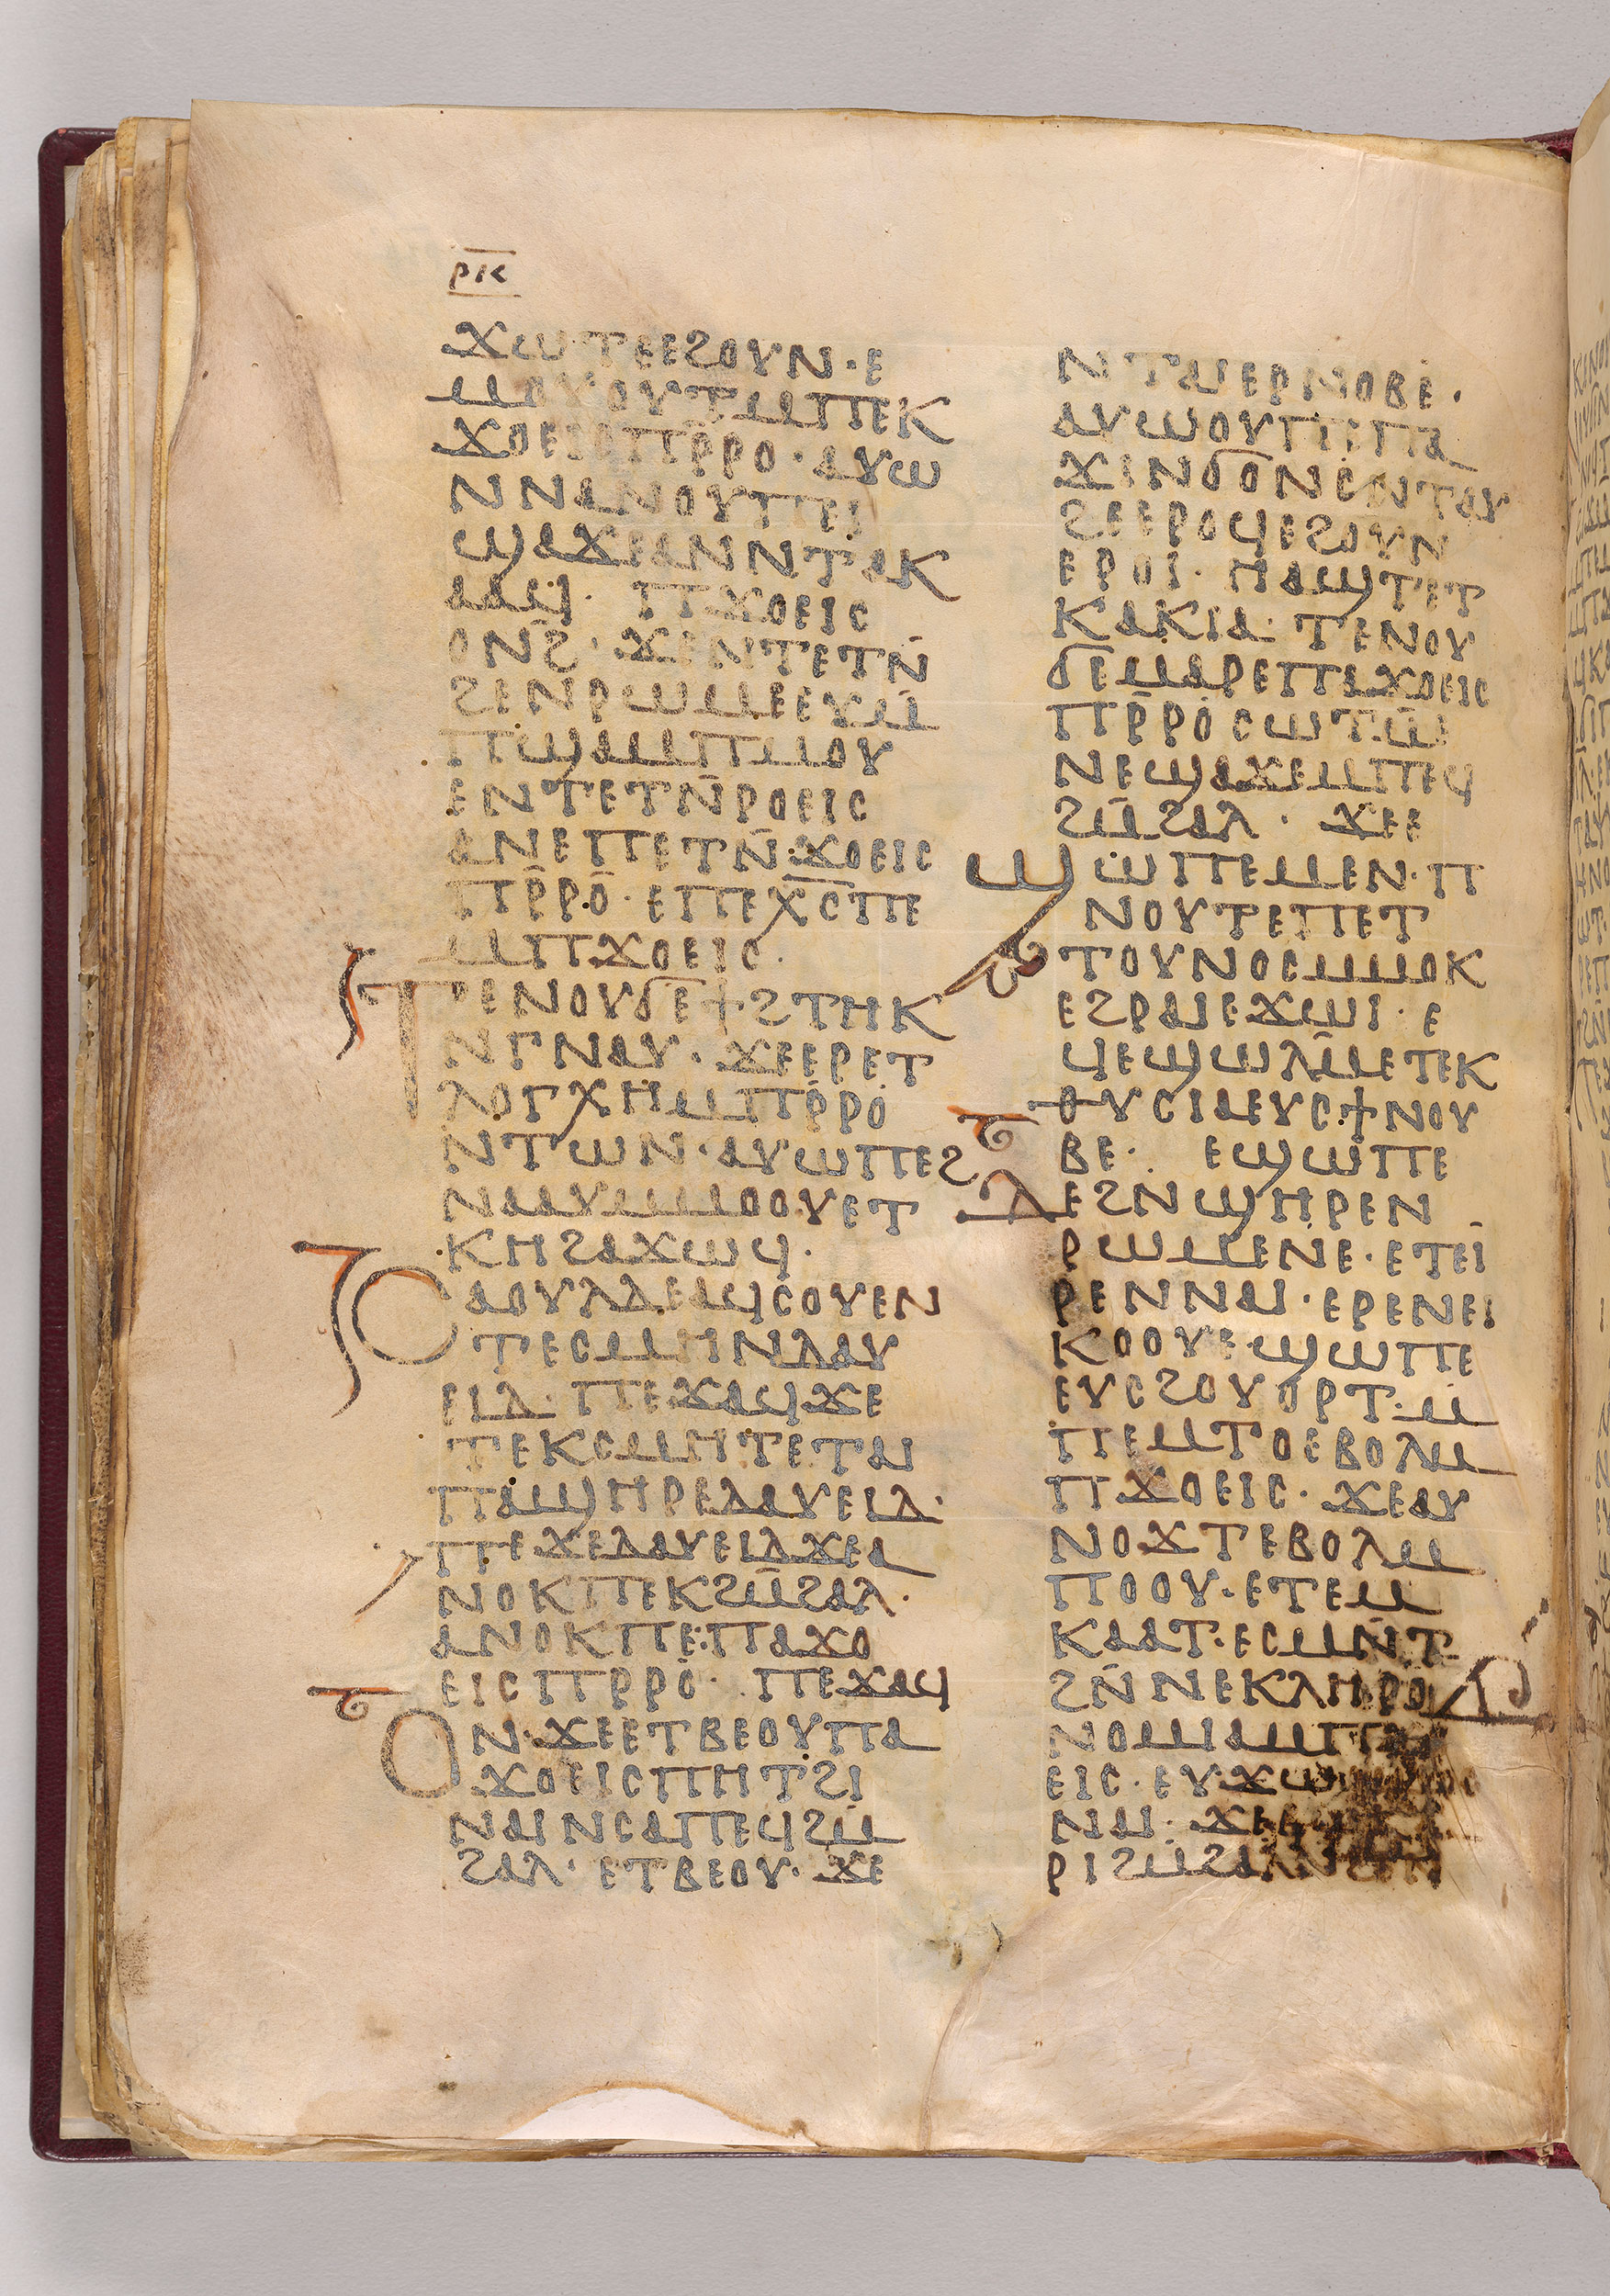 ⲣⲕ
ϫⲱⲧⲉⲉϩⲟⲩⲛ·ⲉ
ⲙⲟⲩⲟⲩⲧⲙⲡⲉⲕ
ϫⲟⲉⲓⲥⲡⲣ̄ⲣⲟ·ⲁⲩⲱ
ⲛⲛⲁⲛⲟⲩⲡⲉⲓ
ϣⲁϫⲉⲁⲛⲛⲧⲁⲕ
ⲁⲁϥ· ⲡϫⲟⲉⲓⲥ
ⲟⲛϩ̄·ϫⲉⲛⲧⲉⲧⲛ̄
ϩⲉⲛⲣⲱⲙⲉⲉⲩⲙ̄
ⲡϣⲁⲙⲡⲙⲟⲩ
ⲉⲛⲧⲉⲧⲛ̄ⲣⲟⲉⲓⲥ
ⲁⲛⲉⲡⲉⲧⲛ̄ϫⲟⲉⲓⲥ
ⲡⲣ̄ⲣⲟ·ⲉⲡⲉⲭ̄ⲥ̄ⲡⲉ
ⲙⲡϫⲟⲉⲓⲥ·
ⲧⲉⲛⲟⲩϭⲉϯϩⲧⲏⲕ
ⲛⲅⲛⲁⲩ·ϫⲉⲉⲣⲉⲧ
ⲗⲟⲅⲭⲏⲙⲡⲣ̄ⲣⲟ
ⲛⲧⲱⲛ·ⲁⲩⲱⲡⲉϩ
ⲛⲁⲁⲩⲙⲙⲟⲟⲩⲉⲧ
ⲕⲏϩⲁϫⲱϥ·
ⲥⲁⲟⲩⲗⲇⲉⲁϥⲥⲟⲩⲉⲛ
ⲧⲉⲥⲙⲏⲛⲇⲁⲩ
ⲉⲓⲇ·ⲡⲉϫⲁϥϫⲉ
ⲧⲉⲕⲥⲙⲏⲧⲉⲧⲁⲓ
ⲡⲁϣⲏⲣⲉⲇⲁⲩⲉⲓⲇ·
ⲡⲉϫⲉⲇⲁⲩⲉⲓⲇϫⲉⲁ
ⲛⲟⲕⲡⲉⲕϩⲙ̄ϩⲁⲗ·
ⲁⲛⲟⲕⲡⲉ·ⲡⲁϫⲟ
ⲉⲓⲥⲡⲣⲣⲟ· ⲡⲉϫⲁϥ
ⲟⲛ·ϫⲉⲉⲧⲃⲉⲟⲩⲡⲁ
ϫⲟⲉⲓⲥⲡⲏⲧϩⲓ
ⲛⲁⲓⲛⲥⲁⲡⲉϥϩⲙ̄
ϩⲁⲗ·ⲉⲧⲃⲉⲟⲩ·ϫⲉ
ⲛⲧⲁⲓⲉⲣⲛⲟⲃⲉ·
ⲁⲩⲱⲟⲩⲡⲉⲡⲁ
ϫⲓⲛϭⲟⲛⲥⲛⲧⲁⲩ
ϩⲉⲉⲣⲟϥⲉϩⲟⲩⲛ
ⲉⲣⲟⲓ·ⲏⲁϣⲧⲉⲧ
ⲕⲁⲕⲓⲁ·ⲧⲉⲛⲟⲩ
ϭⲉⲙⲁⲣⲉⲡⲁϫⲟⲉⲓⲥ
ⲡⲣ̄ⲣⲟⲥⲱⲧⲙ̄
ⲛⲉϣⲁϫⲉⲙⲡⲉϥ
ϩⲙ̄ϩⲁⲗ· ϫⲉⲉ
ϣⲱⲡⲉⲙⲉⲛ·ⲡ
ⲛⲟⲩⲧⲉⲡⲉⲧ
ⲧⲟⲩⲛⲟⲥⲙⲙⲟⲕ
ⲉϩⲣⲁⲓⲉϫⲱⲓ·ⲉ
ϥⲉϣⲱⲗⲙ̄ⲉⲧⲉⲕ
ⲑⲩⲥⲓⲁⲉⲩⲥϯⲛⲟⲩ
ⲃⲉ· ⲉϣⲱⲡⲉ
ⲇⲉϩⲛϣⲏⲣⲉⲛ
ⲣⲱⲙⲉⲛⲉ·ⲉⲧⲉⲓ
ⲣⲉⲛⲛⲁⲓ·ⲉⲣⲉⲛⲉⲓ
ⲕⲟⲟⲩⲉ·ϣⲱⲡⲉ
ⲉⲩⲥϩⲟⲩⲟⲣⲧ·ⲙ
ⲡⲉⲙⲧⲟⲉⲃⲟⲗⲙ
ⲡϫⲟⲉⲓⲥ·ϫⲉⲁⲩ
ⲛⲟϫⲧⲉⲃⲟⲗⲙ
ⲡⲟⲟⲩ·ⲉⲧⲉⲙ
ⲕⲁⲁⲧ·ⲉⲥⲙⲛ̄ⲧ
ϩⲛ̄ⲛⲉⲕⲗⲏⲣⲟ
ⲛⲟⲙⲓⲁⲙⲡ
ⲉⲓⲥ·ⲉⲩϫⲱ
ⲛⲁⲓ·ϫⲉ
ⲣⲓϩⲙϩⲁⲗ